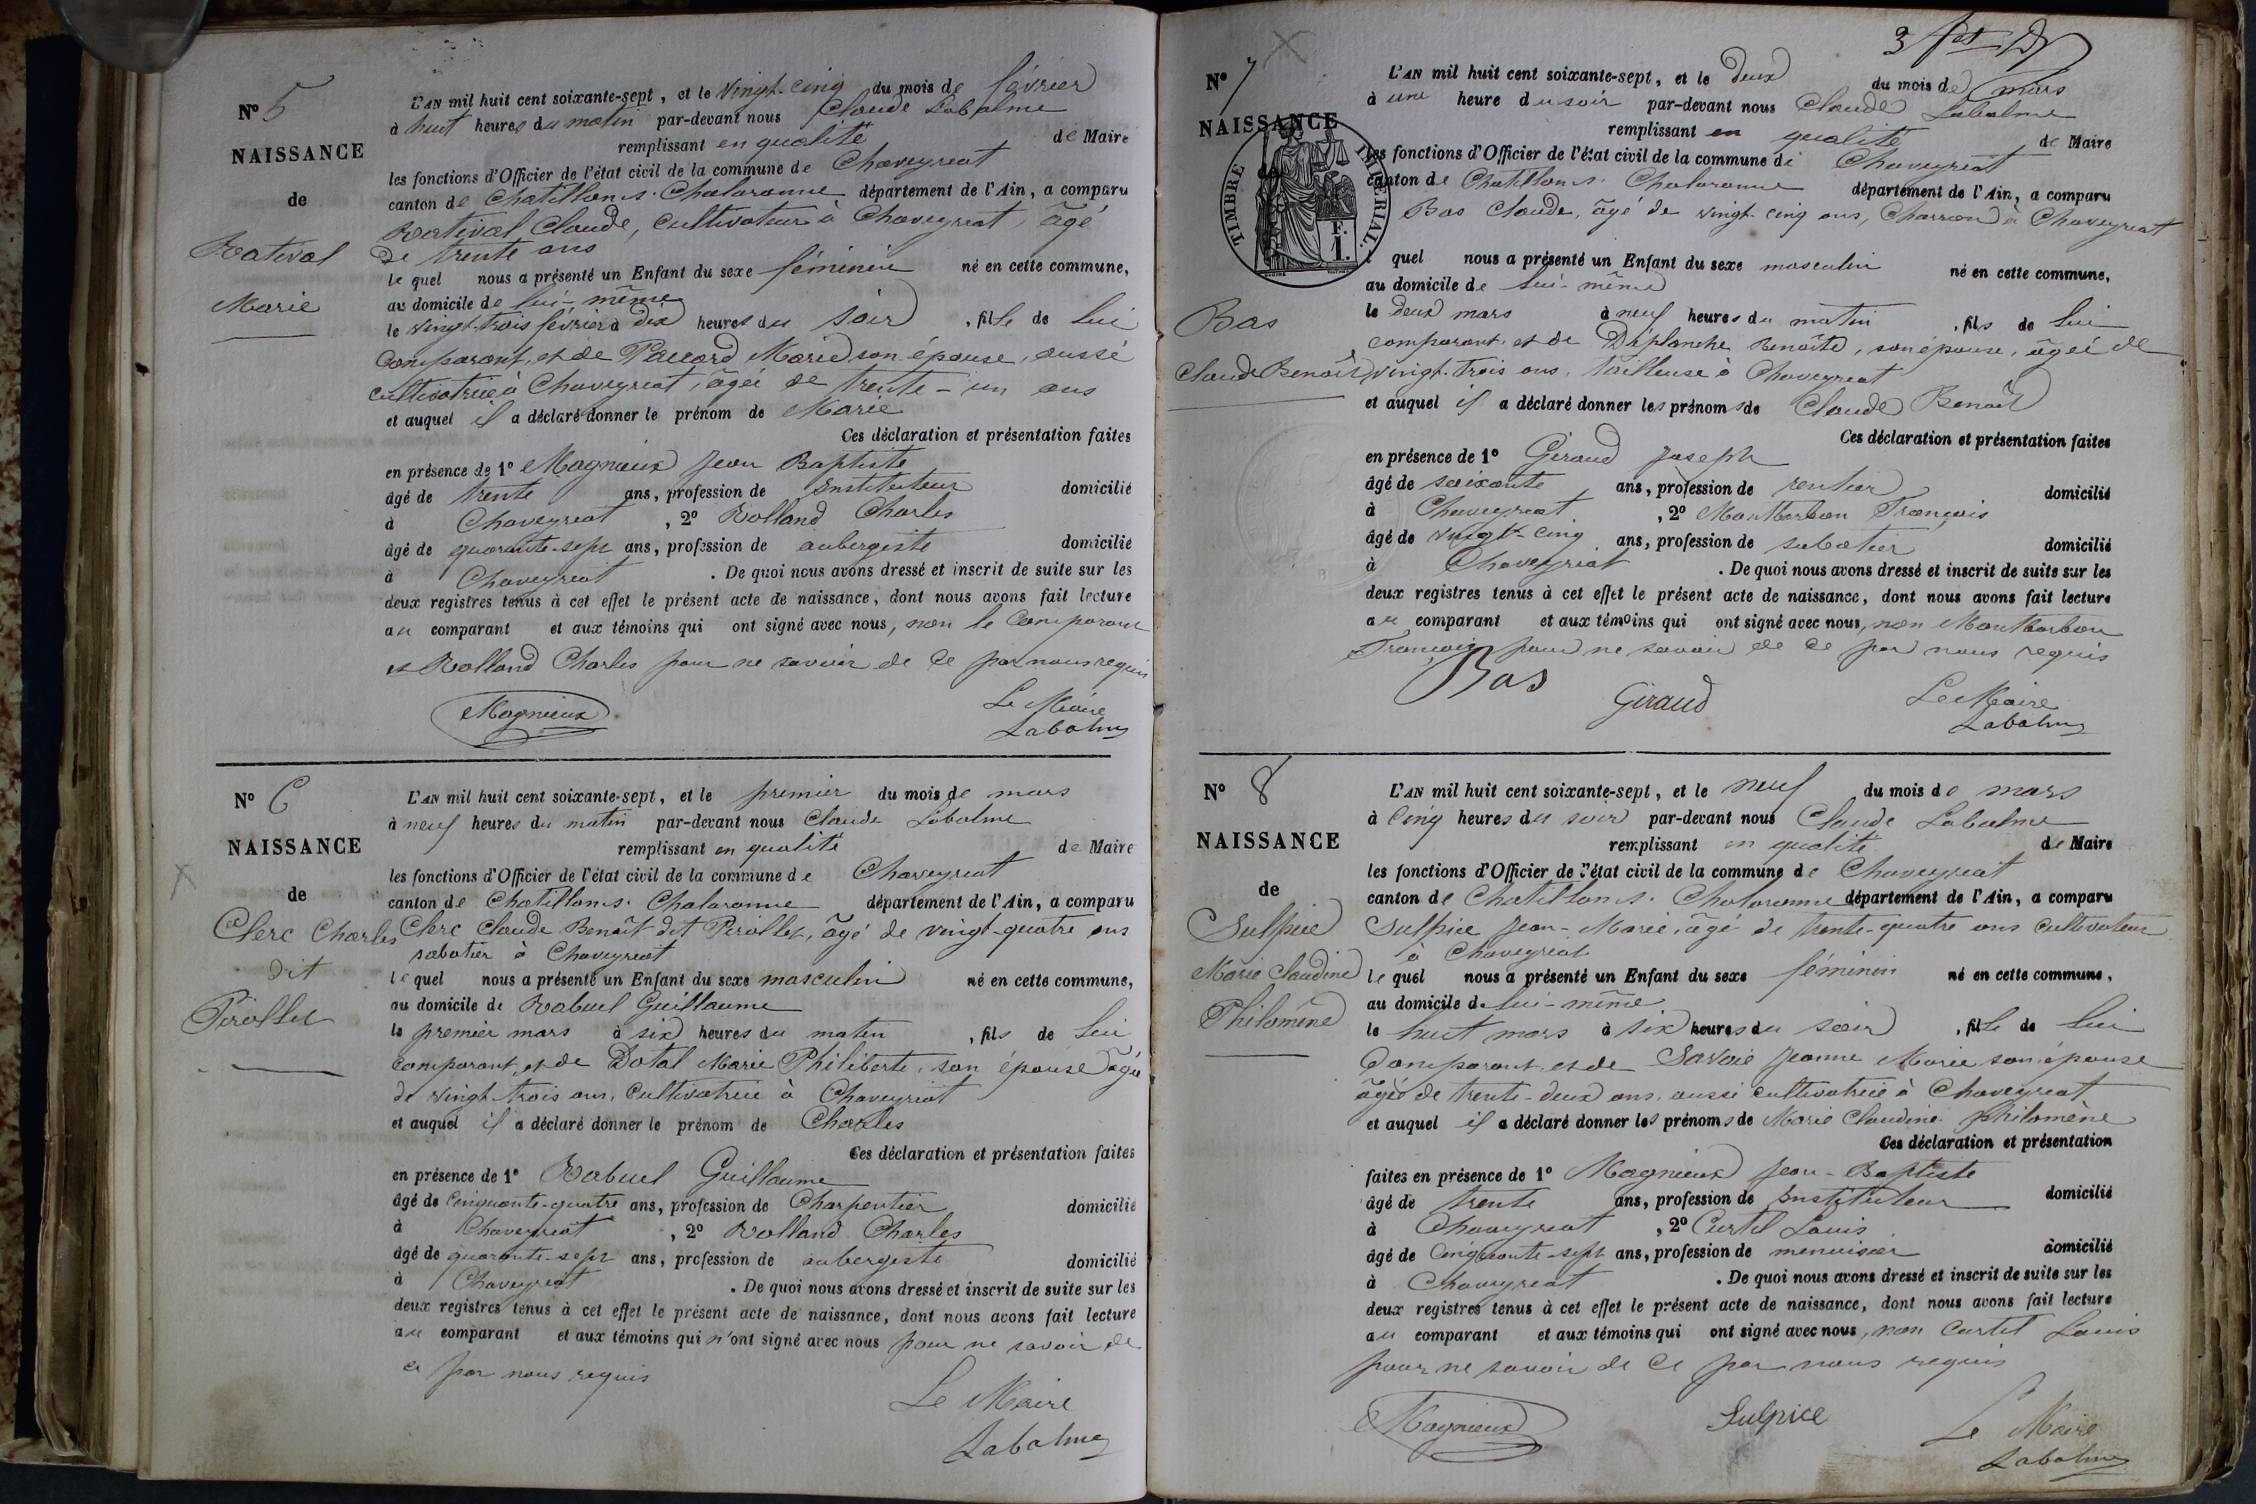 N° 5
NAISSANCE
de
Ratival
Marie
L'AN mil huit cent soixante-sept, et le vingt-cinq du mois de février
à huit heures du matin par-devant nous Claude Labalme
remplissant en qualité de Maire
les fonctions d'Officier de l'état civil de la commune de Chaveyriat
canton de Chatillon s. Chalaronne département de l'Ain, a comparu
Ratival Claude, cultivateur à Chaveyriat, âgé
de trente ans
lequel nous a présenté un Enfant du sexe féminin né en cette commune,
au domicile de lui-même
le vingt-trois février à dix heures du soir, fille de lui
comparant, et de Paccard Marie son épouse, aussi
cultivatrice à Chaveyriat, âgée de trente-un ans
et auquel il a déclaré donner le prénom de Marie
Ces déclaration et présentation faites
en présence de 1° Magnieux Jean Baptiste
âgé de trente ans, profession de Instituteur domicilié
à Chaveyriat, 2° Rolland Charles
âgé de quarante-sept ans, profession de aubergiste domicilié
à Chaveyriat. De quoi nous avons dressé et inscrit de suite sur les
deux registres tenus à cet effet le présent acte de naissance, dont nous avons fait lecture
au comparant et aux témoins qui ont signé avec nous, non le comparant
et Rolland Charles pour ne savoir de ce par nous requis
Magnieux
Le Maire
Labalme
N° 6
NAISSANCE
de
Clerc Charles
dit
Pirollet
L'AN mil huit cent soixante-sept, et le premier du mois de mars
à neuf heures du matin par-devant nous Claude Labalme
remplissant en qualité de Maire
les fonctions d'Officier de l'état civil de la commune de Chaveyriat
canton de Chatillon s. Chalaronne département de l'Ain, a comparu
Clerc Claude Benoît dit Pirollet, âgé de vingt-quatre ans
sabotier à Chaveyriat
lequel nous a présenté un Enfant du sexe masculin né en cette commune,
au domicile de Rabuel Guillaume
le premier mars à six heures du matin, fils de lui
comparant, et de Dotal Marie Philiberte, son épouse âgée
de vingt-trois ans, cultivatrice à Chaveyriat
et auquel il a déclaré donner le prénom de Charles
Ces déclaration et présentation faites
en présence de 1° Rabuel Guillaume
âgé de cinquante-quatre ans, profession de Charpentier domicilié
à Chaveyriat, 2° Rolland Charles
âgé de quarante-sept ans, profession de aubergiste domicilié
à Chaveyriat. De quoi nous avons dressé et inscrit de suite sur les
deux registres tenus à cet effet le présent acte de naissance, dont nous avons fait lecture
au comparant et aux témoins qui n'ont signé avec nous pour ne savoir de
ce par nous requis
Le Maire
Labalme
N° 7
NAISSANCE
de
TIMBRE IMPERIAL.
F.
1.
Bas
Claude Benoît
L'AN mil huit cent soixante-sept, et le deux du mois de mars
à une heure du soir par-devant nous Claude Labalme
remplissant en qualité de Maire
les fonctions d'Officier de l'état civil de la commune de Chaveyriat
canton de Chatillon s. Chalaronne département de l'Ain, a comparu
Bas Claude, âgé de vingt-cinq ans, Charron à Chaveyriat
quel nous a présenté un Enfant du sexe masculin né en cette commune,
au domicile de lui-même
le deux mars à neuf heures du matin, fils de lui
comparant, et de Déplanche Benoîte, son épouse, âgée de
vingt-trois ans, tailleuse à Chaveyriat
et auquel il a déclaré donner les prénoms de Claude Benoît
Ces déclaration et présentation faites
en présence de 1° Giraud Joseph
âgé de soixante ans, profession de rentier domicilié
à Chaveyriat, 2° Montbarbon François
âgé de vingt-cinq ans, profession de sabotier domicilié
à Chaveyriat. De quoi nous avons dressé et inscrit de suite sur les
deux registres tenus à cet effet le présent acte de naissance, dont nous avons fait lecture
au comparant et aux témoins qui ont signé avec nous, non Montbarbon
François pour ne savoir de ce par nous requis
Bas
Giraud
Le Maire
Labalme
N° 8
NAISSANCE
de
Sulpice
Marie Claudine
Philomène
L'AN mil huit cent soixante-sept, et le neuf du mois de mars
à cinq heures du soir par-devant nous Claude Labalme
remplissant en qualité de Maire
les fonctions d'Officier de l'état civil de la commune de Chaveyriat
canton de Chatillon s. Chalaronne département de l'Ain, a comparu
Sulpice Jean-Marie, âgé de trente-quatre ans cultivateur
à Chaveyriat
lequel nous a présenté un Enfant du sexe féminin né en cette commune,
au domicile de lui-même
le huit mars à six heures du soir, fille de lui
comparant, et de Savoie Jeanne Marie son épouse
âgée de trente-deux ans, aussi cultivatrice à Chaveyriat
et auquel il a déclaré donner les prénoms de Marie Claudine Philomène
Ces déclaration et présentation
faites en présence de 1° Magnieux Jean-Baptiste
âgé de trente ans, profession de Instituteur domicilié
à Chaveyriat, 2° Curtil Louis
âgé de cinquante-sept ans, profession de menuisier domicilié
à Chaveyriat. De quoi nous avons dressé et inscrit de suite sur les
deux registres tenus à cet effet le présent acte de naissance, dont nous avons fait lecture
au comparant et aux témoins qui ont signé avec nous, non Curtil Louis
pour ne savoir de ce par nous requis
Magnieux
Sulpice
Le Maire
Labalme